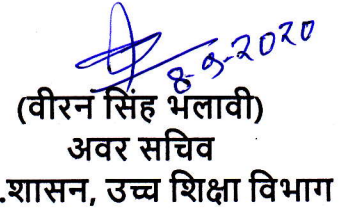 8-9-2020
(वीरन सिंह भलावी)
अवर सचिव
.शासन, उच्च शिक्षा विभाग